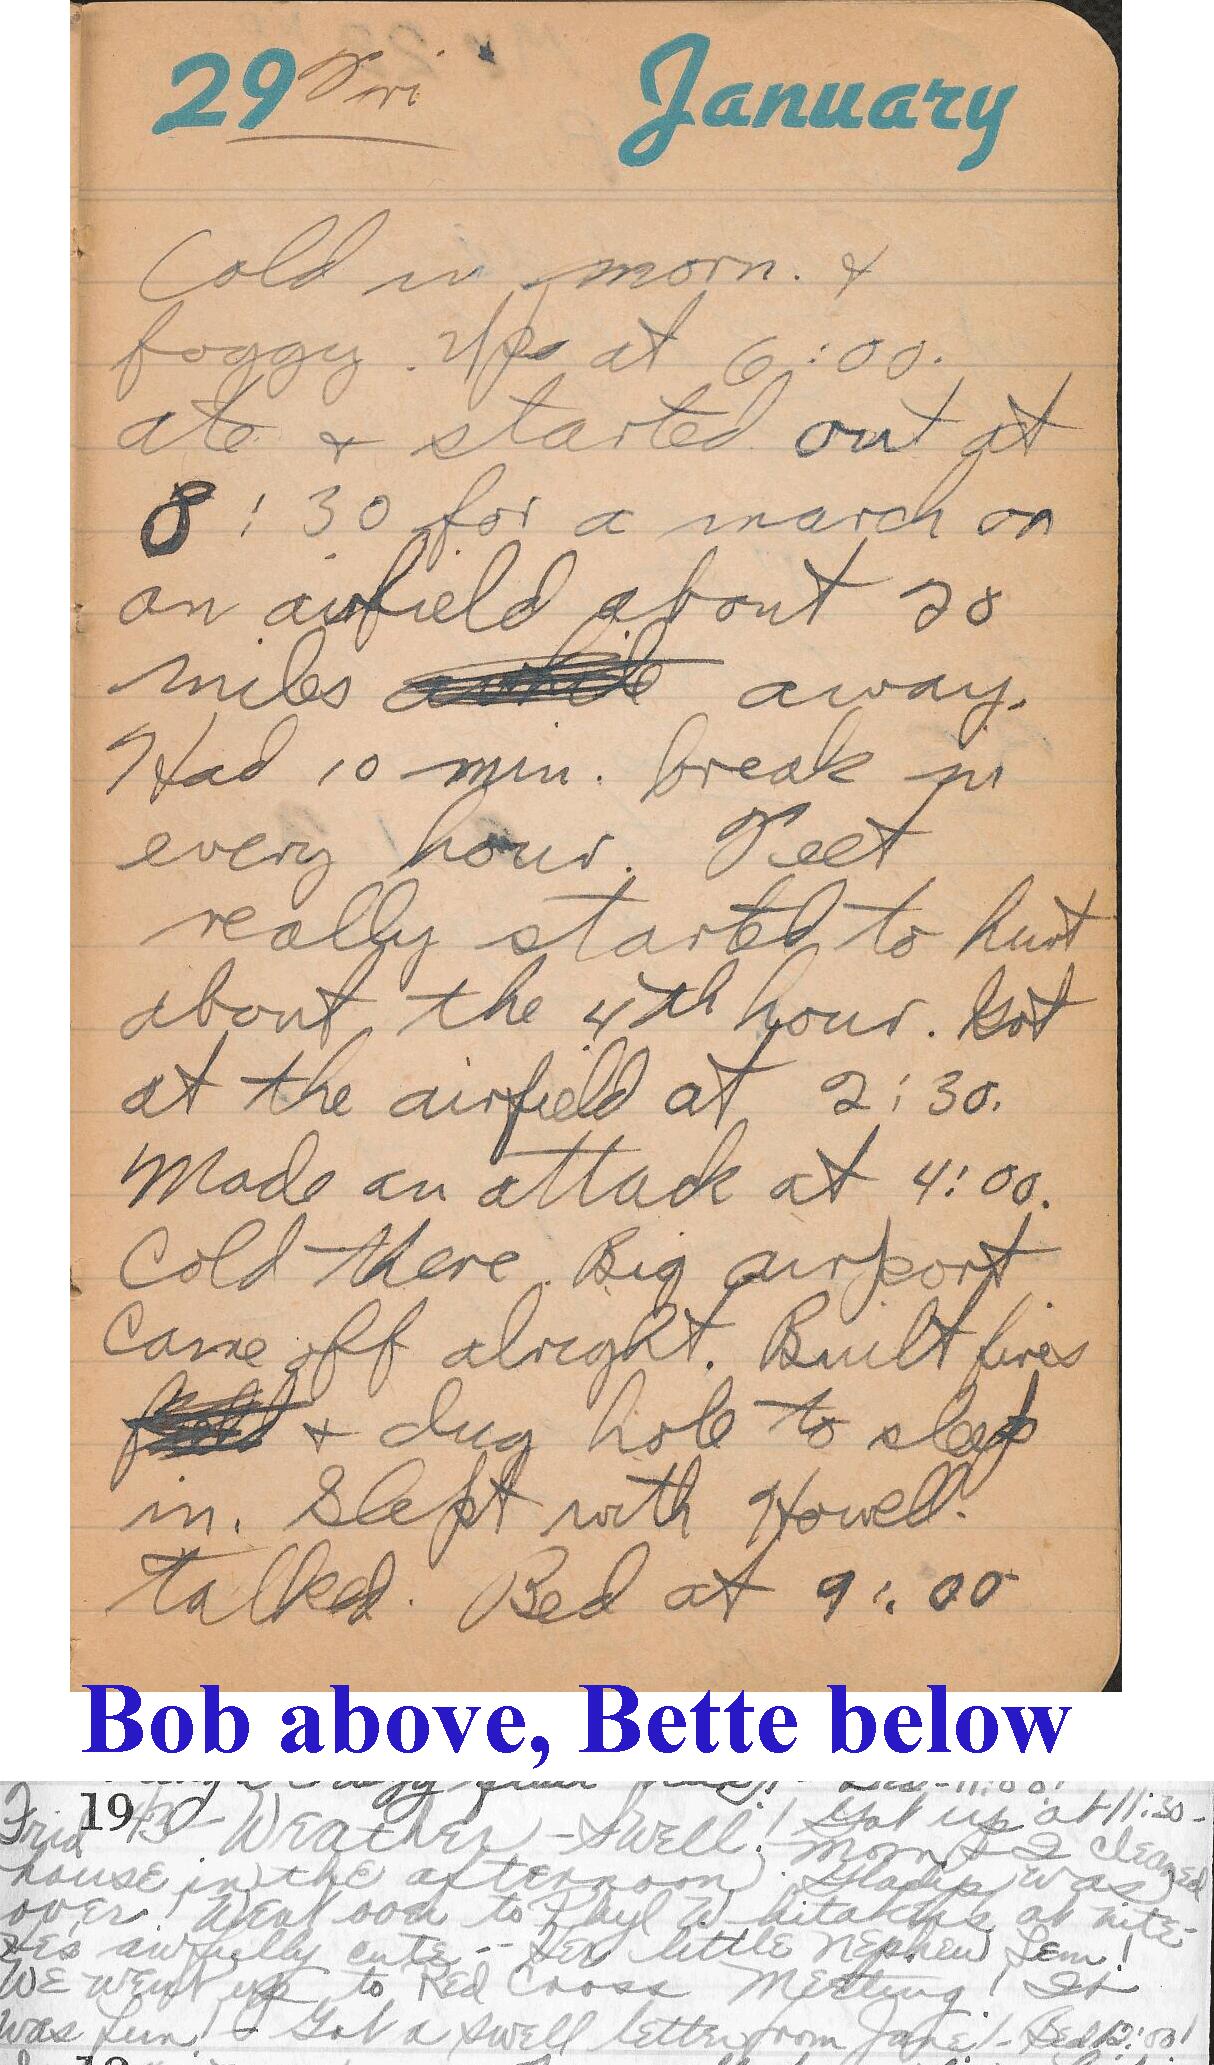 29 Fri January
Cold in morn. &
foggy. Up at 6:00.
ate & started out at
8:30 for a march on
an airfield about 20
miles away.
Had 10 min. break in
every hour. Feet
really started to hurt
about the 4th hour. Got
at the airfield at 2:30.
Made an attack at 4:00.
Cold there. Big airport
Came off alright. Built fires
& dug hole to sleep
in. Slept with Howell.
talked. Bed at 9:00
Bob above, Bette below
19
Frid 43 - Weather - Swell! Got up at 11:30-
Mom & I cleaned
house in the afternoon. Gladys was
over! Went over to Phyl Whitakers at nite-
awfully cute -- Her little nephew Lem!
We went up to Red Cross Meeting! It
was fun! - Got a swell letter from Jane! - Bed 12:00!